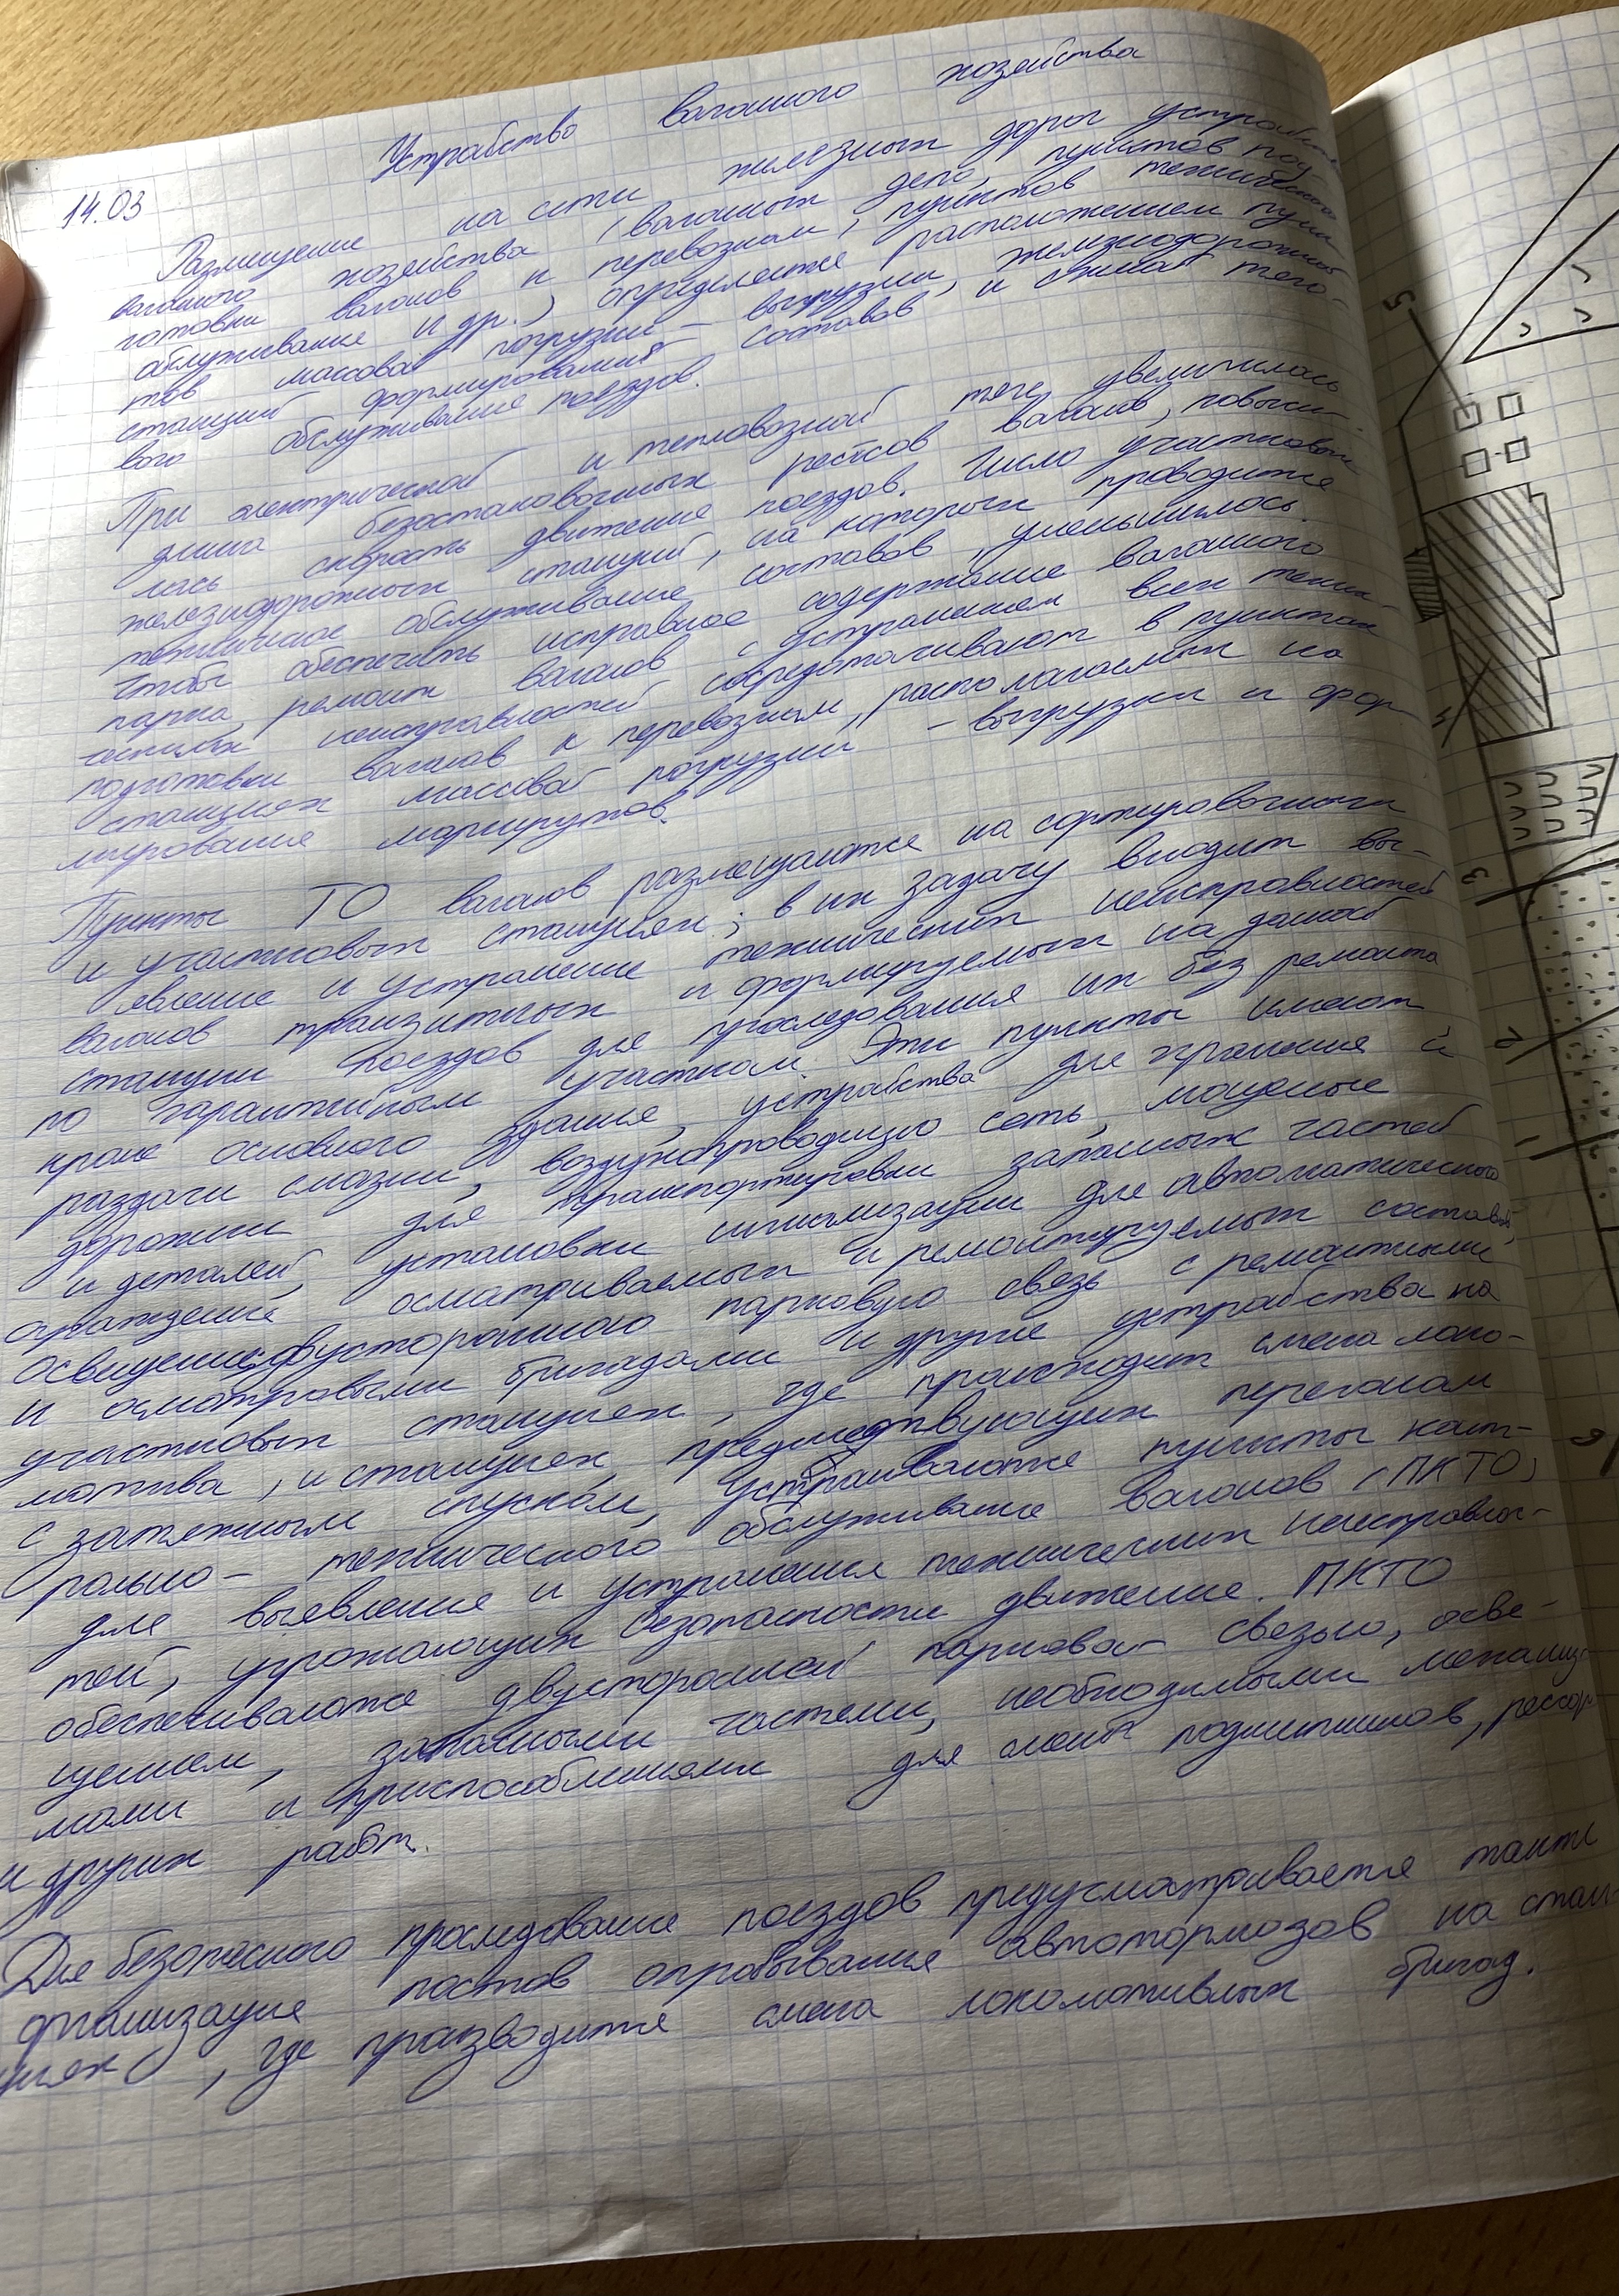 14.03
Устрайство вагонного хозяйства
Размещение на сети железных дорог устройств
вагонного хозяйства (вагонных депо, пунктов под
готовки вагонов к перевозкам, пунктов технического
обслуживание и др.) определяется расположением пунк
тов массовой погрузки - выгрузки, железнодорожных
станций формирования составов и схемой тяго-
вого обслуживание поездов.
При электрической и тепловозной тяге увеличилась
длина безостановочных рейсов вагонов, повыси-
лась скорость движение поездов. Число участковых
железнодорожных станций, на которых проводится
техническое обслуживание составов, уменьшилось.
Чтобы обеспечить исправное содержание вагонного
парка, ремонт вагонов с устранением всех техни-
ческих неисправностей сосредотачивают в пунктах
подготовки вагонов к перевозкам, располагаемых на
станциях массовой погрузки - выгрузки и фор
мирование маршрутов.
Пункты ТО вагонов размещаются на сортировочных
и участковых станциях; в их задачу входит вы-
явление и устранение технических неисправностей
вагонов транзитных и формируемых на данной
станции поездов для проследования их без ремонта
по гарантийным участкам. Эти пункты имеют
кроме основного здание, устрайства для хранения и
раздачи смазки, воздухопроводящую сеть, мощеные
дорожки для транспортировки запасных частей
и деталей, установки сигнализации для автоматического
ограждений осматриваемых и ремонтируемых составов,
освещение, двустороннюю парковую связь с ремонтными
и осмотровыми бригадами и другие устрайства на
участковых станциях, где происходит смена локо-
мотива, и станциях, предшествующих перегонам
с затяжным спуском, устраиваются пункты конт-
рольно - технического обслуживание вагонов (ПКТО)
для выявление и устранения технических неисправнос-
тей, угрожающих безопасности движение. ПКТО
обеспечиваются двусторонней парковой связью, осве-
щением, запасными частями, необходимыми механиз-
мами и приспособлениями для смены подшипников, рессор
и других работ.
Для безопасного проследование поездов предусматривается также
организация постов опробывания автотормозов на стан
циях, где производится смена локомотивных бригад.
5
4
3
2
1
6